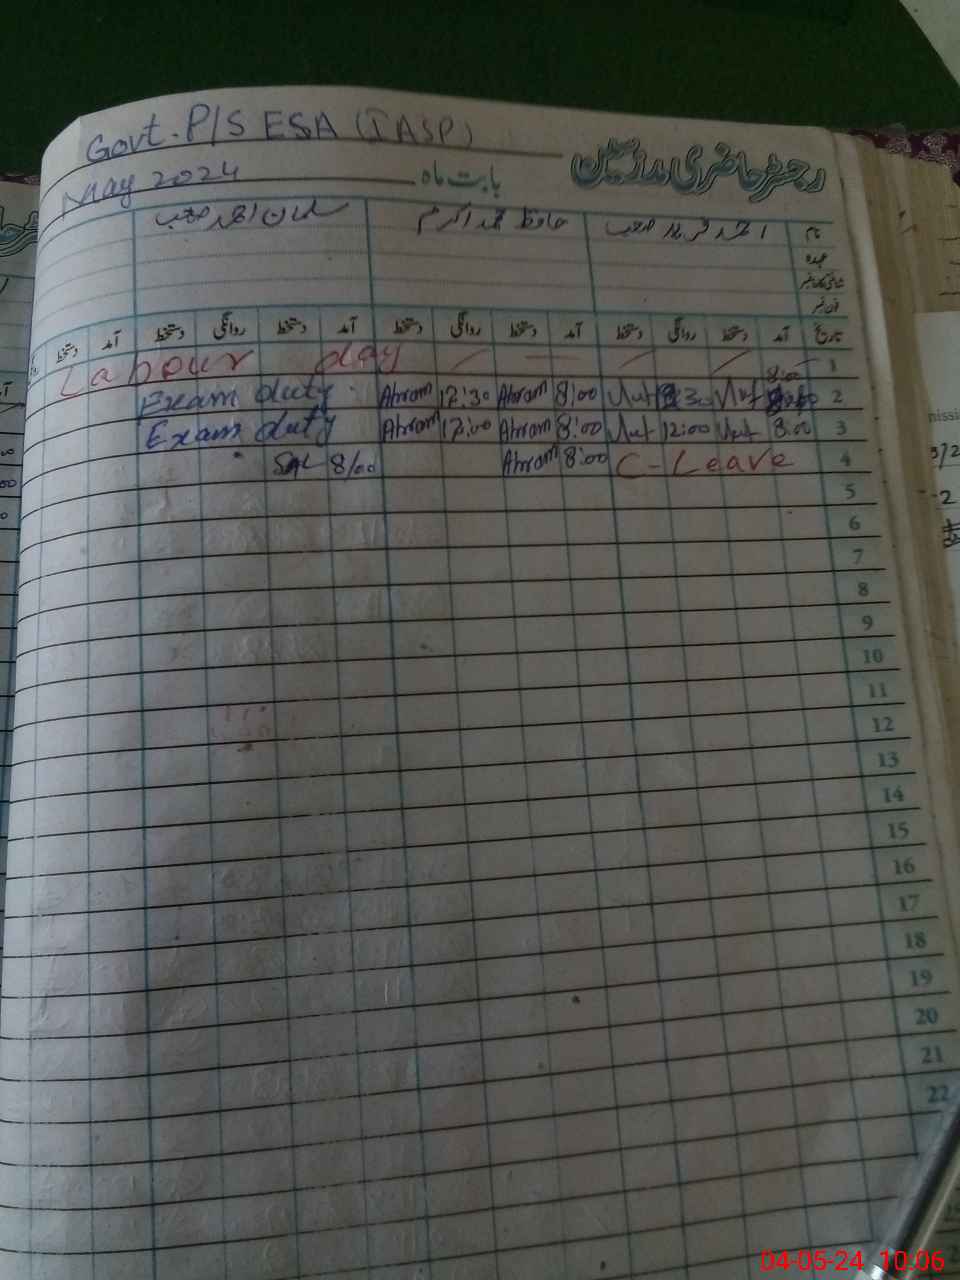 Govt. P/S ESA (IASP)
رجسٹر حاضری مدرسین
بابت ماہ May 2024
نام احمد فرید صاحب حافظ محمد اکرم سلمان احمد صاحب
عہدہ
شناختی کارڈ نمبر
فون نمبر
تاریخ آمد دستخط روانگی دستخط آمد دستخط روانگی دستخط آمد دستخط روانگی دستخط آمد دستخط
1 Labour day
2 Exam duty Ahram 12:30 Ahram 8:00 8:00
3 Exam duty Ahram 12:00 Ahram 8:00 12:00 8:00
4 8/00 Ahram 8:00 C-Leave
5
6
7
8
9
10
11
12
13
14
15
16
17
18
19
20
21
22
04-05-24 10:06